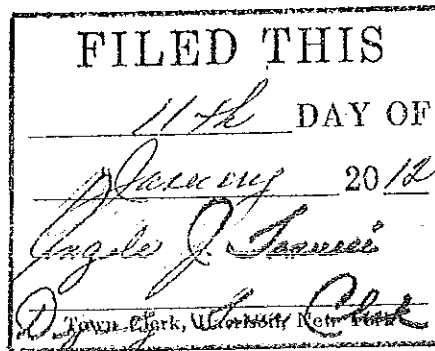 FILED THIS
11th DAY OF
January 2012
Angelo J.
Deputy Town Clerk
Town Clerk, Harrison, New York